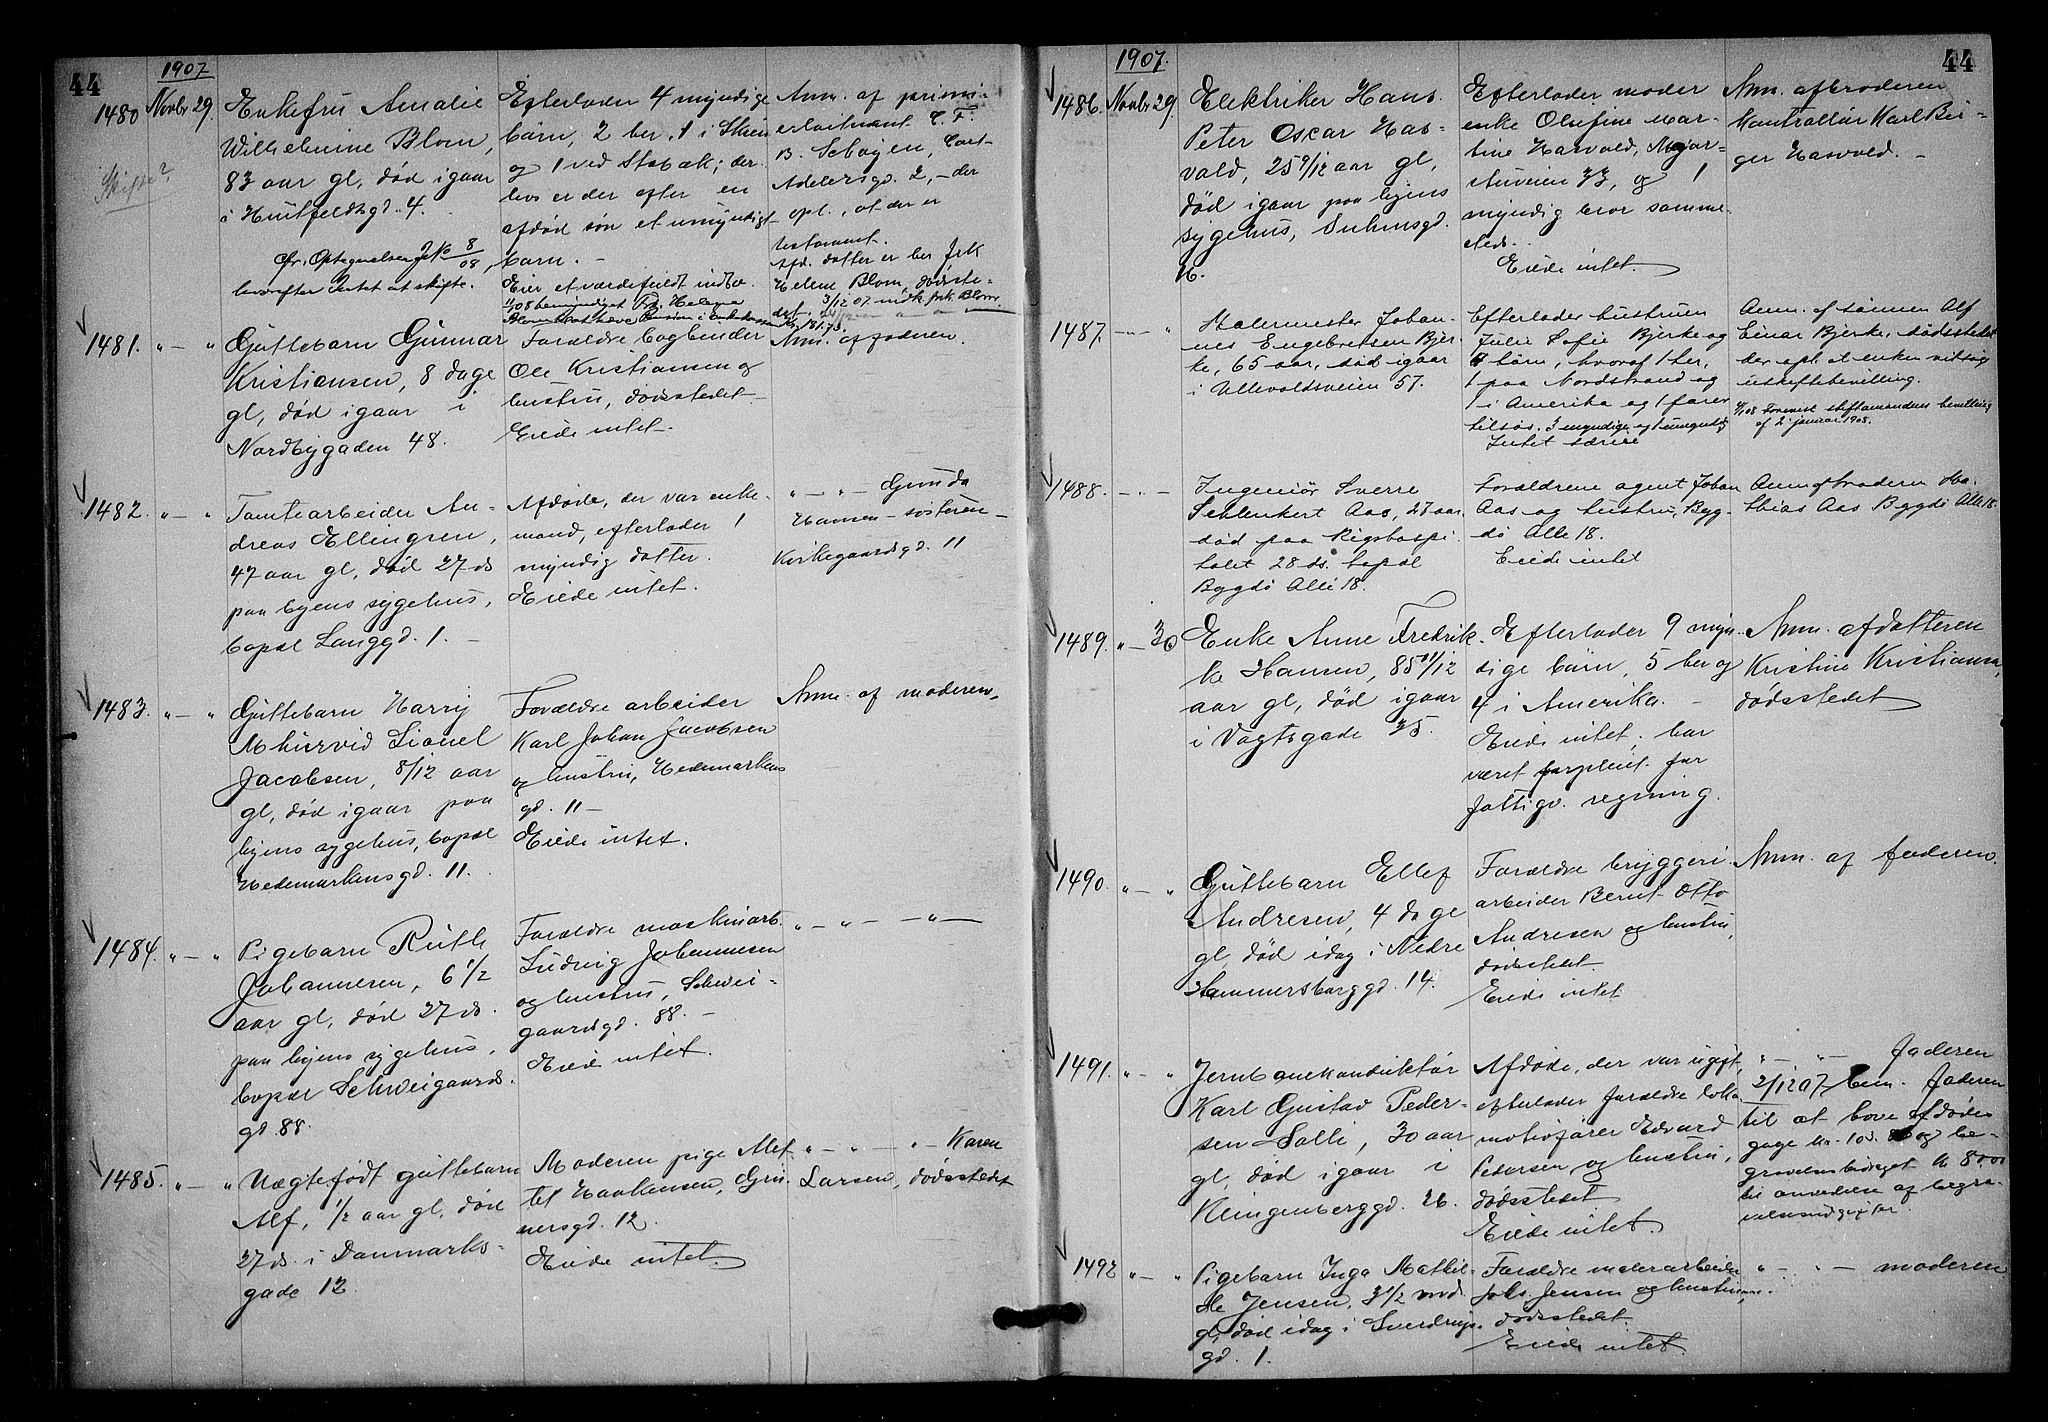 44
1907
1480 Novbr 29.
Skifte?
Enkefru Amalie
Wilhelmine Blom,
83 aar gl, død igaar
i Huitfeldtsgd. 4.
cfr. Optegnelser J No 8/08,
hvorefter Intet at skifte.
Efterlader 4 myndige
børn, 2 her, 1 i Skien
og 1 ved Stabæk; der-
hos er der efter en
afdød søn et umyndigt
barn. –
Eier et værdifuldt indbo.
Anm. af premi-
erløitnant C. F.
B. Schøyen, Cort
Adelersgd. 2, – der
opl., at der er
testament.
Afd. datter er her frk
Helene Blom, dødste-
det. 3/12 07 frk. Blom
1481. " — "
Guttebarn Gunnar
Kristiansen, 8 dage
gl, død igaar i
Nordbygaden 48.
Forældre bogbinder
Ole Kristiansen og
hustru, dødsstedet –
Eiede intet.
Anm. af faderen.
1482. " — "
Tomtearbeider An-
dreas Ellingsen,
47 aar gl, død 27 ds
paa byens sygehus,
bopæl Langgd. 1. –
Afdøde, der var enke-
mand, efterlader 1
myndig datter.
Eiede intet.
" — " — Gunda
Hansen – søsteren –
Kirkegaardsgd. 11
1483. " — "
Guttebarn Harry
Lionel
Jacobsen, 8/12 aar
gl, død igaar paa
byens sygehus, bopæl
Hedemarkensgd. 11.
Forældre arbeider
Karl Johan Jacobsen
og hustru, Hedemarkens
gd. 11 –
Eiede intet.
Anm. af moderen.
1484. " — "
Pigebarn Ruth
Johannesen, 6 1/2
aar gl, død 27 ds.
paa byens sygehus,
bopæl Schweigaards.
gd. 88.
Forældre maskinarb.
Ludvig Johannesen
og hustru, Schwei-
gaardsgd. 88. –
Eiede intet.
" — " — " —
1485. " — "
Uægtefødt guttebarn
Alf, 1/2 aar gl, død
27 ds. i Danmarks-
gade 12.
Moderen pige Alet-
te Haakensen, Grü-
nersgd. 12.
Eiede intet.
" — " — " — Karen
Larsen, dødsstedet
1907.
44
1486. Novbr 29.
Elektriker Hans
Peter Oscar Has-
vold, 25 9/12 aar gl,
død igaar paa byens
sygehus, Suhmsgd.
Efterlader moder
enke Olufine Mar-
tine Hasvold, Mejor-
stuveien 33, og 1
myndig bror samme-
steds.
Eiede intet.
Anm. af broderen
kontrollør Karl Bir-
ger Hasvold. –
1487. — "
Malermester Johan-
nes Engebretsen Bjer-
ke, 65 aar, død igaar
i Ullevoldsveien 57.
Efterlader hustruen
Julie Sofie Bjerke og
4 børn, hvoraf 1 her,
1 paa Nordstrand og
1 i Amerika og 1 farer
tilsøs. 3 myndige og 1 umyndig
Intet særeie
Anm. af sønnen Alf
Einar Bjerke, dødsstedet
der opl. at enken vil søge
uskiftebevilling.
Forevist stiftamandens bevilling
af 2 januar 1908.
1488. — " —
Ingeniør Sverre
Schlenkert Aas, 27 aar
død paa Rigshospi-
talet 28 ds. bopæl
Bygdø Alle 18.
Forældrene agent Johan
Aas og hustru, Byg-
dø Alle 18.
Eiede intet
Anm af broderen Ma-
thias Aas Bygdø Alle 18.
1489. " — 30
Enke Anne Fredrik-
ke Hansen, 85 11/12
aar gl, død igaar
i Vogtsgade 35.
Efterlader 9 myn-
dige børn, 5 her og
4 i Amerika. –
Eiede intet; har
været forpleiet for
fattigv. regning.
Anm. af datteren
Kristine Kristiansen,
dødsstedet
1490. " — "
Guttebarn Ellef
Andresen, 4 dage
gl, død idag i Nedre
Hammersborggd. 14.
Forældre bryggeri
arbeider Bernt Otto
Andresen og hustru,
dødsstedet.
Eiede intet.
Anm. af faderen.
1491. " — "
Jernbanekonduktør
Karl Gustav Peder-
sen Solli, 30 aar
gl, død igaar i
Klingenberggd. 26.
Afdøde, der var ugift,
efterlader forældre loko
motivfører Edvard
Pedersen og hustru,
dødsstedet
Eiede intet.
" — " — faderen
2/12 07 bem. faderen
til at hæve afdødes
gage og be-
gravelsesbidraget
til anvendelse af begra-
velsesudgifter.
1492 " — "
Pigebarn Inga Mathil-
de Jensen, 3 1/2 md.
gl, død idag i Sverdrups.
gd. 1.
Forældre malerarbeider
Johs. Jensen og hustru,
dødsstedet.
Eiede intet.
" — " — moderen